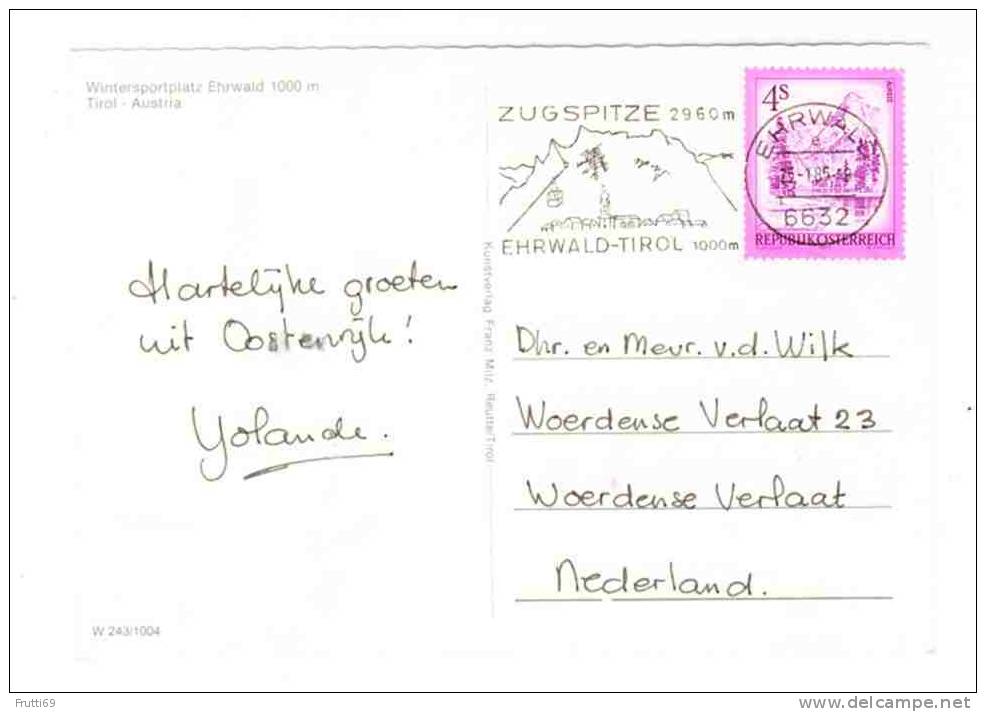 Wintersportplatz Ehrwald 1000 m
Tirol - Austria
ZUGSPITZE 2960m
EHRWALD-TIROL 1000m
4S
EHRWALD
e
6632
REPUBLIK ÖSTERREICH
Kunstverlag Franz Milz, Reutte/Tirol
Hartelijke groeten
uit Oostenrijk!
Yolande.
Dhr. en Mevr. v.d. Wilk
Woerdense Verlaat 23
Woerdense Verlaat
Nederland.
W 243/1004
Frutti69
delcampe.net